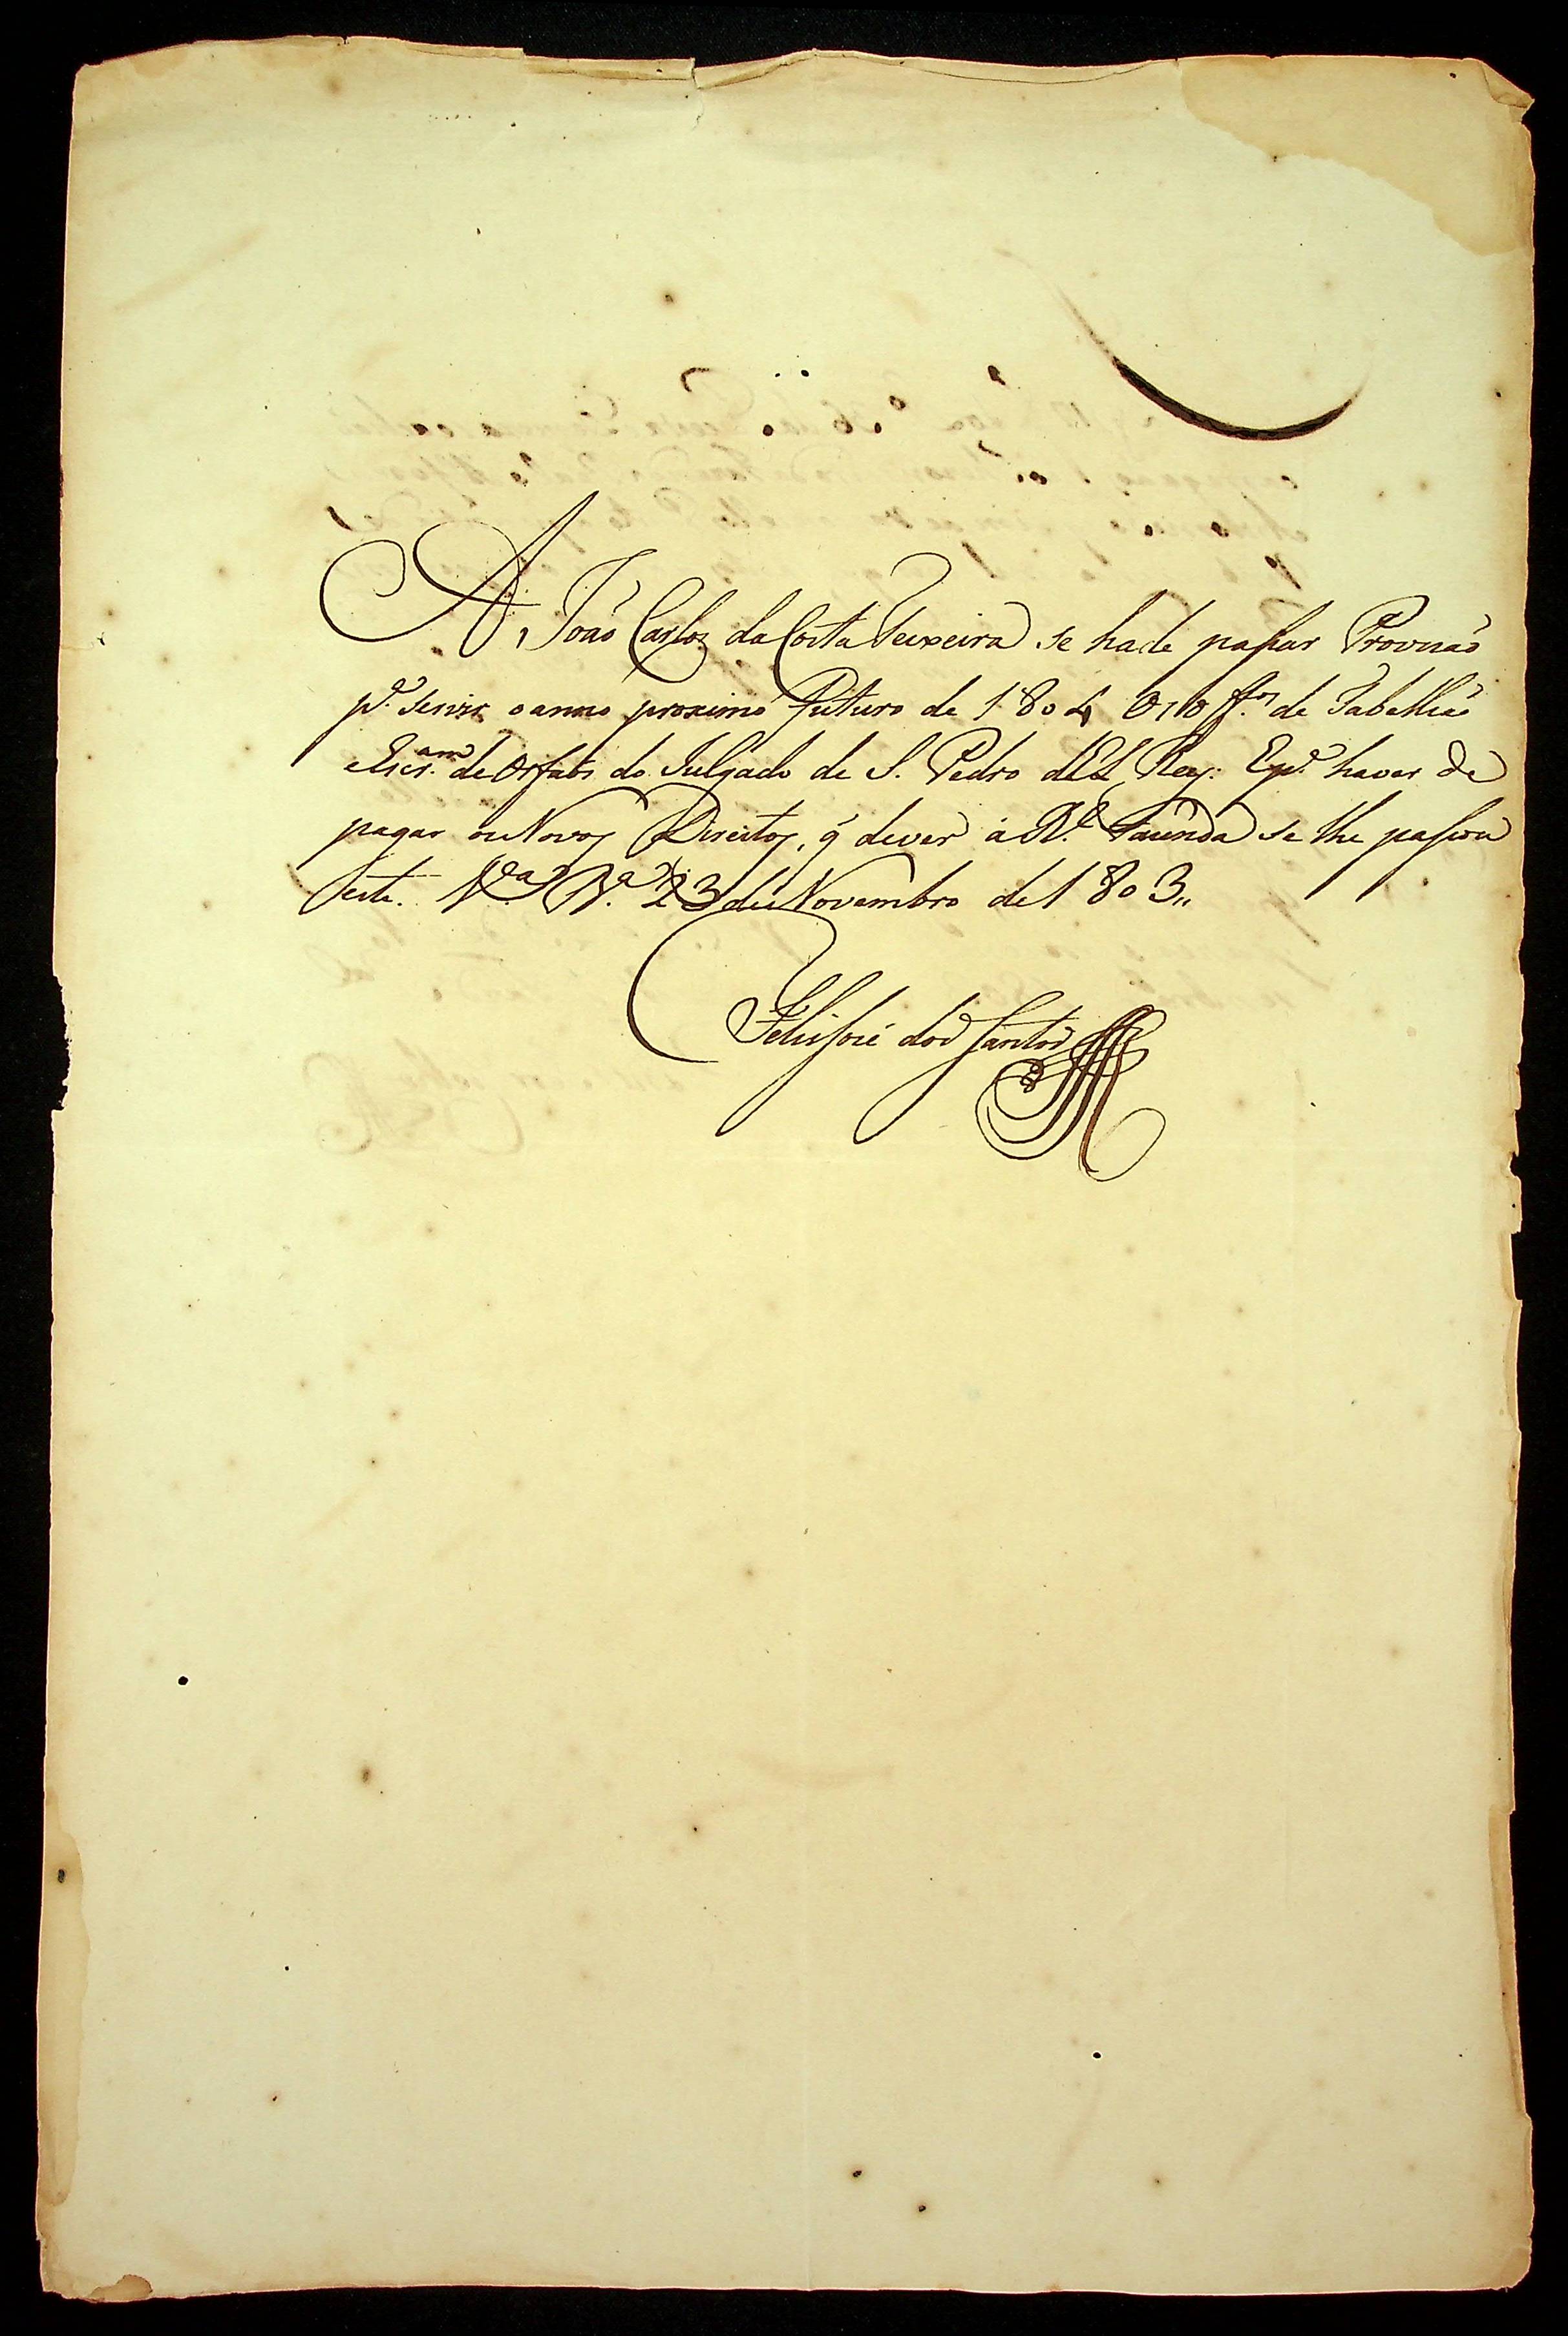 A João Carlos da Costa Teixeira se hade passar Provizaõ
pª. servir o anno proximo futuro de 1804 os off.ºˢ de Taballiaõ
e Escr.ᵃᵐ de Orfaõs do Julgado de S. Pedro d'El Rey. E pª. haver de
pagar os Novos Direitos, q̃ dever á R.ˡ Fazenda se lhe passou
este. Vª. Bª. 23 de Novembro de 1803„
Felis José dos Santos